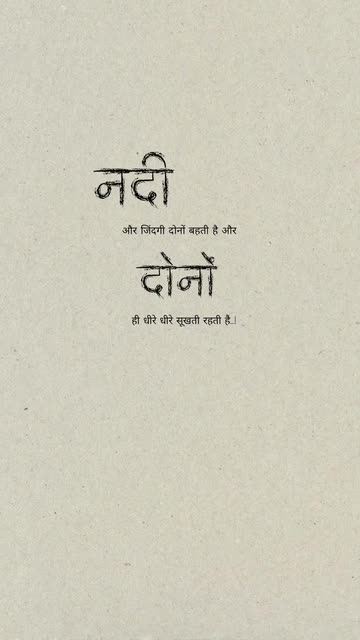 नदी
और जिंदगी दोनों बहती है और
दोनों
ही धीरे धीरे सूखती रहती है..।